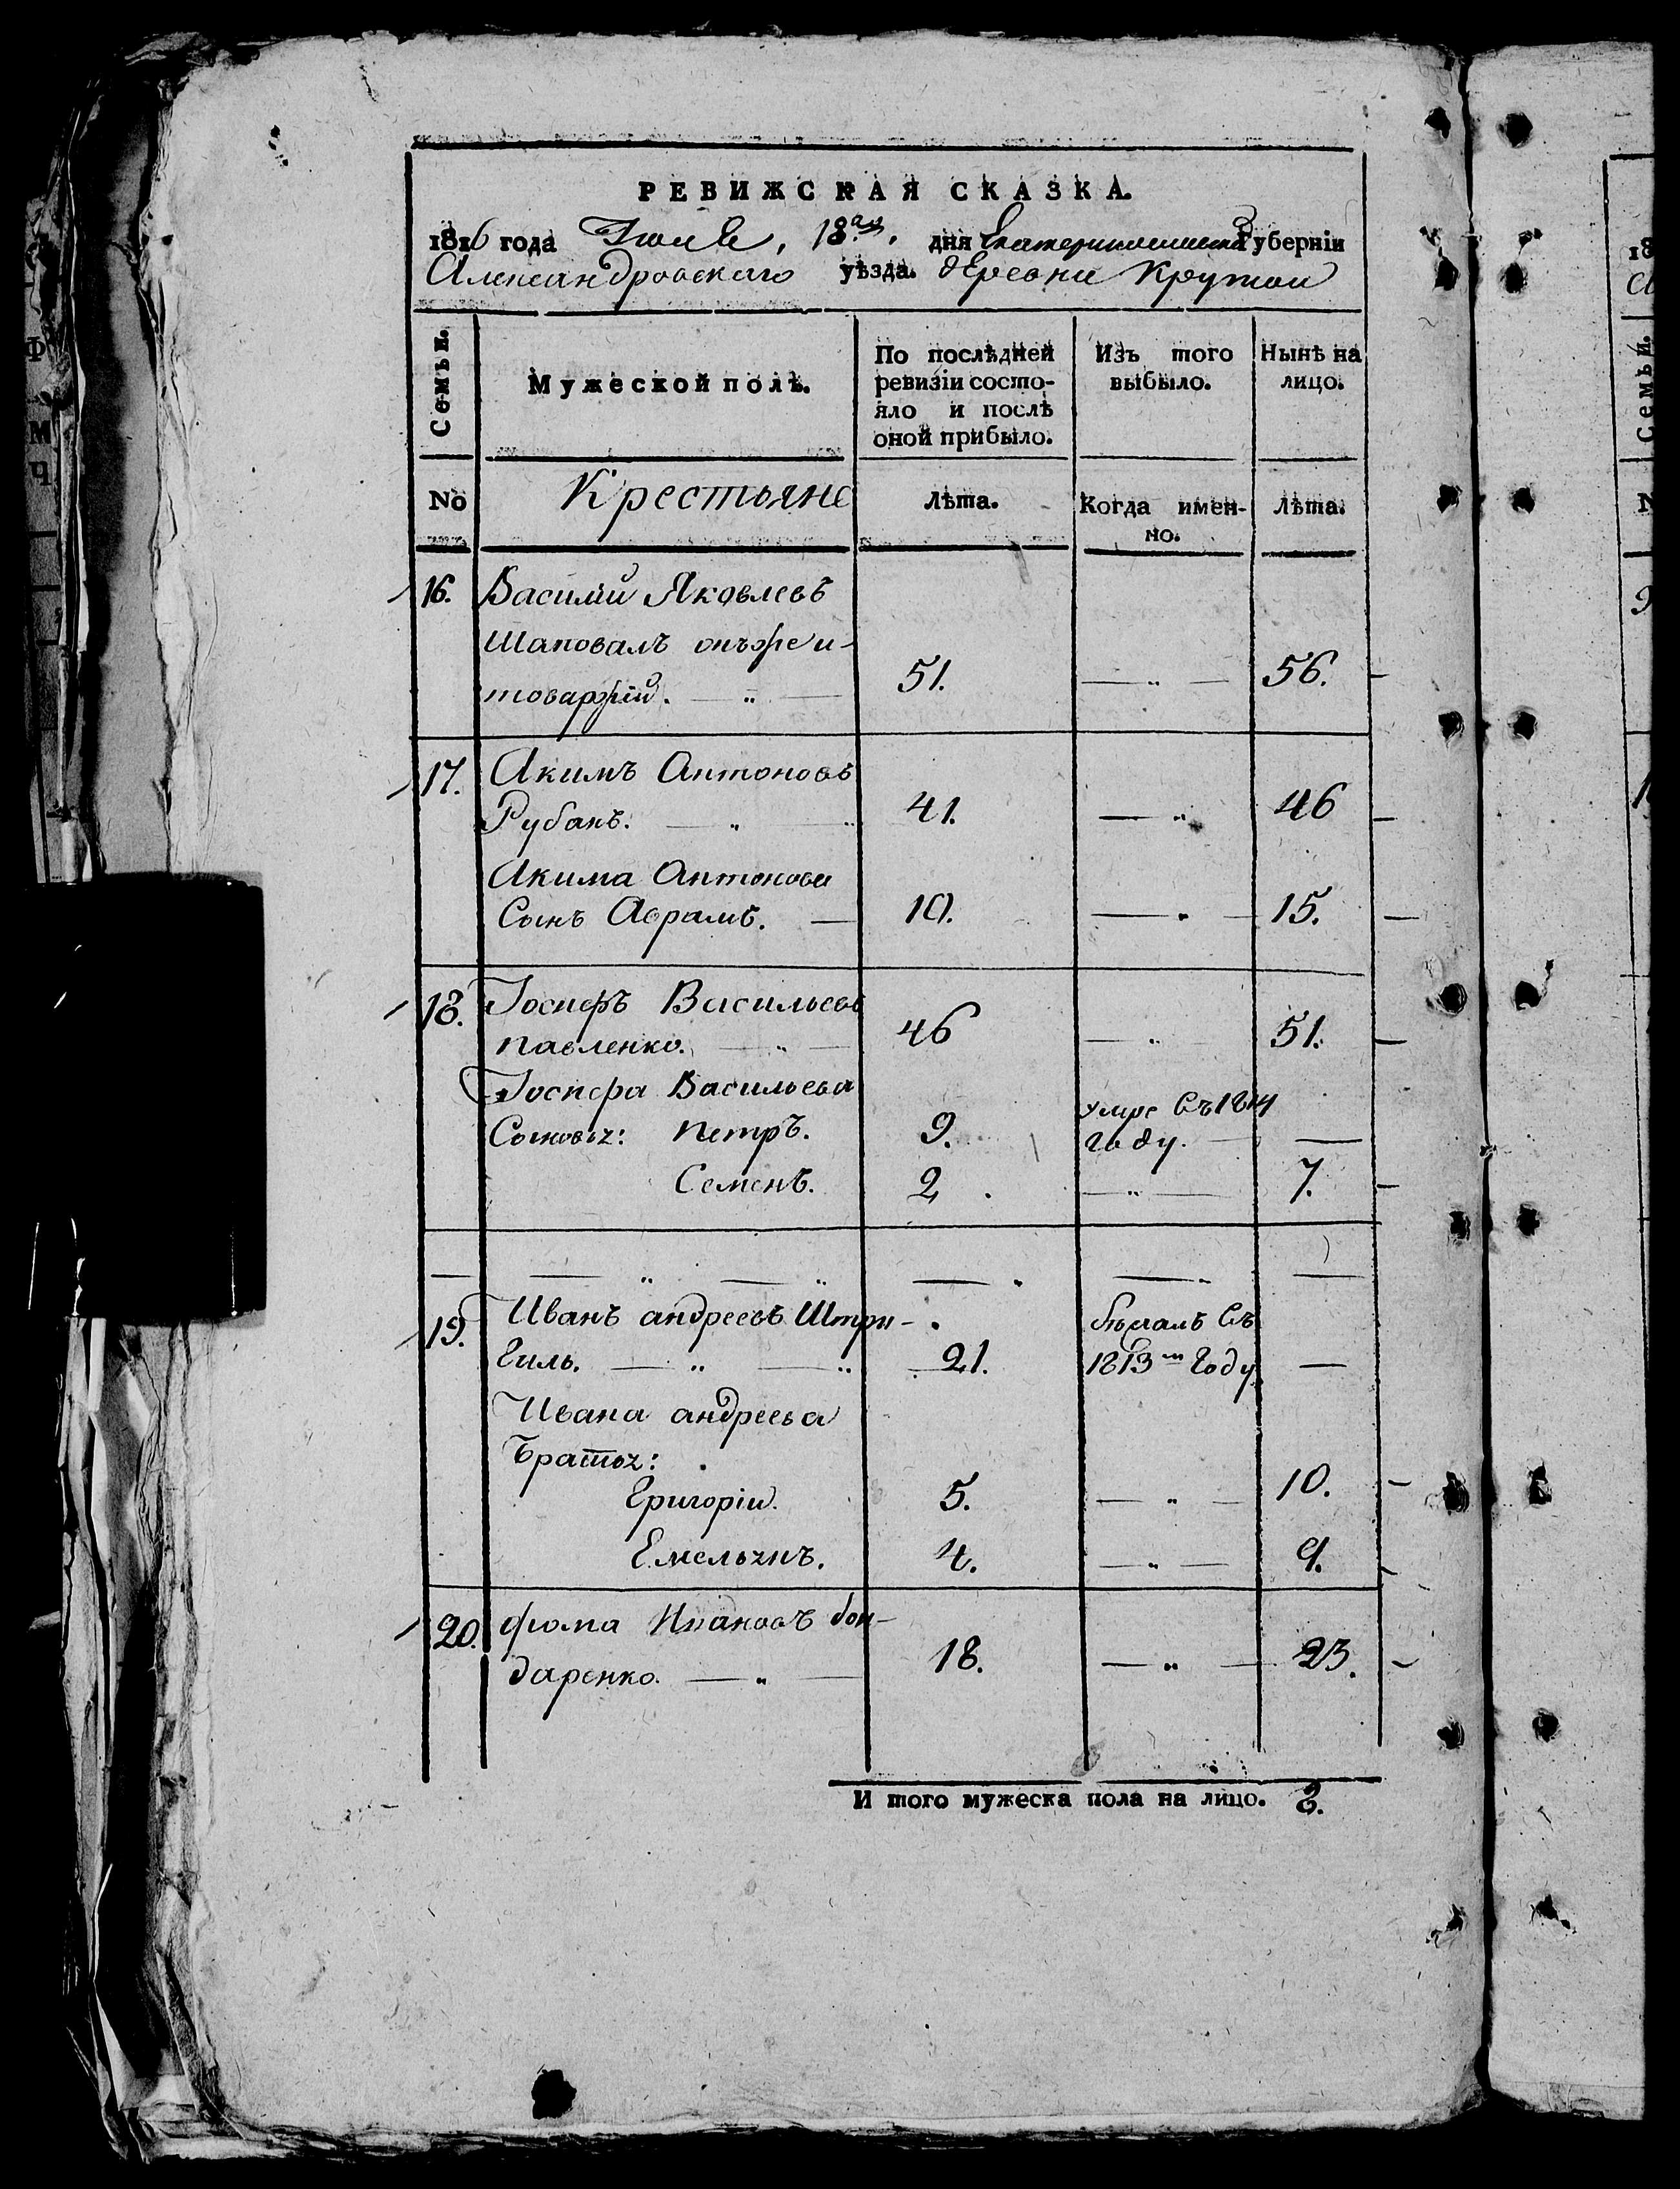 РЕВИЖСКАЯ СКАЗКА.
1816 года Июля, 18го. дня Екатеринославской Губерніи
Александровскаго уѣзда. деревни Крутои
Семьи. Мужеской полъ. По послѣдней ревизіи состояло и послѣ оной прибыло. Изъ того выбыло. Нынѣ на лицо.
No Крестьяне лѣта. Когда именно. лѣта.
16. Василий Яковлевъ
Шаповалъ онъ же и-
товаржій. 51. — " — 56.
17. Акимъ Антоновъ
Рубанъ. 41. — " 46
Акима Антонова
Сынъ Аврамъ. — 10. — 15.
18. Іосифъ Васильевъ
павленко. 46 — " 51.
Іосифа Васильева
Сыновья: петръ. 9. умре въ 1814 году. —
Семенъ. 2 — " — 7.
19. Иванъ андреевъ Штри-
гиль. — " — " 21. бѣжалъ въ 1813м году —
Ивана андреева
Братья:
Григоріи. 5. — " — 10.
Емельянъ. 4. — " — 9.
20. фома Ивановъ бон-
даренко. — " — 18. — " — 23.
И того мужеска пола на лицо. 8.